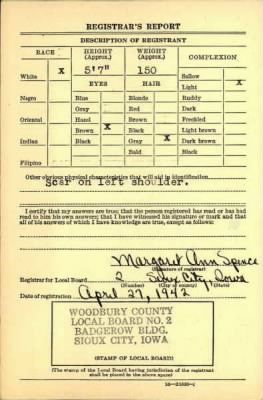 REGISTRAR'S REPORT
DESCRIPTION OF REGISTRANT
RACE HEIGHT (Approx.) WEIGHT (Approx.) COMPLEXION
White X 5'7" 150 Sallow
EYES HAIR Light X
Negro Blue Blonde Ruddy
Gray Red Dark
Oriental Hazel Brown Freckled
Brown X Black Light brown
Indian Black Gray X Dark brown
Bald Black
Filipino
Other obvious physical characteristics that will aid in identification
Scar on left shoulder.
I certify that my answers are true; that the person registered has read or has had
read to him his own answers; that I have witnessed his signature or mark and that
all of his answers of which I have knowledge are true, except as follows:
Margaret Ann Spence
(Signature of registrar)
Registrar for Local Board 2 Sioux City, Iowa
(Number) (City or county) (State)
Date of registration April 27, 1942
WOODBURY COUNTY
LOCAL BOARD NO. 2
BADGEROW BLDG.
SIOUX CITY, IOWA
(STAMP OF LOCAL BOARD)
(The stamp of the Local Board having jurisdiction of the registrant
shall be placed in the above space)